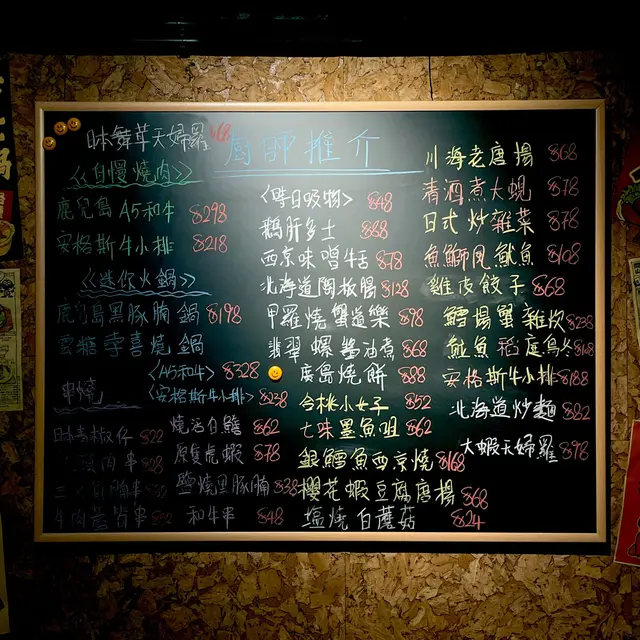 日本舞茸天婦羅 $68
廚師推介
《自慢燒肉》
鹿兒島A5和牛 $298
安格斯牛小排 $218
《迷你火鍋》
鹿兒島黑豚腩鍋 $198
壽喜燒鍋
〈A5和牛〉 $328
〈安格斯牛小排〉 $238
串燒
$22
燒活白鱔 $62
原隻虎蝦 $78
鹽燒黑豚腩 $38
和牛串 $48
〈季日吸物〉 $48
鵝肝多士 $88
西京味噌牛舌 $78
北海道閘板腸 $128
甲羅燒蟹道樂 $98
翡翠螺醬油煮 $68
廣島燒餅 $88
合桃小女子 $52
七味墨魚咀 $62
銀鱈魚西京燒 $168
櫻花蝦豆腐唐揚 $68
塩燒白蘑菇 $24
川海老唐揚 $68
清酒煮大蜆 $78
日式炒雜菜 $78
魚鰤凤魷魚 $108
雞皮餃子 $68
鱈場蟹雜炊 $238
魚稻庭烏冬 $168
安格斯牛小排 $188
北海道炒麵 $82
大蝦天婦羅 $98